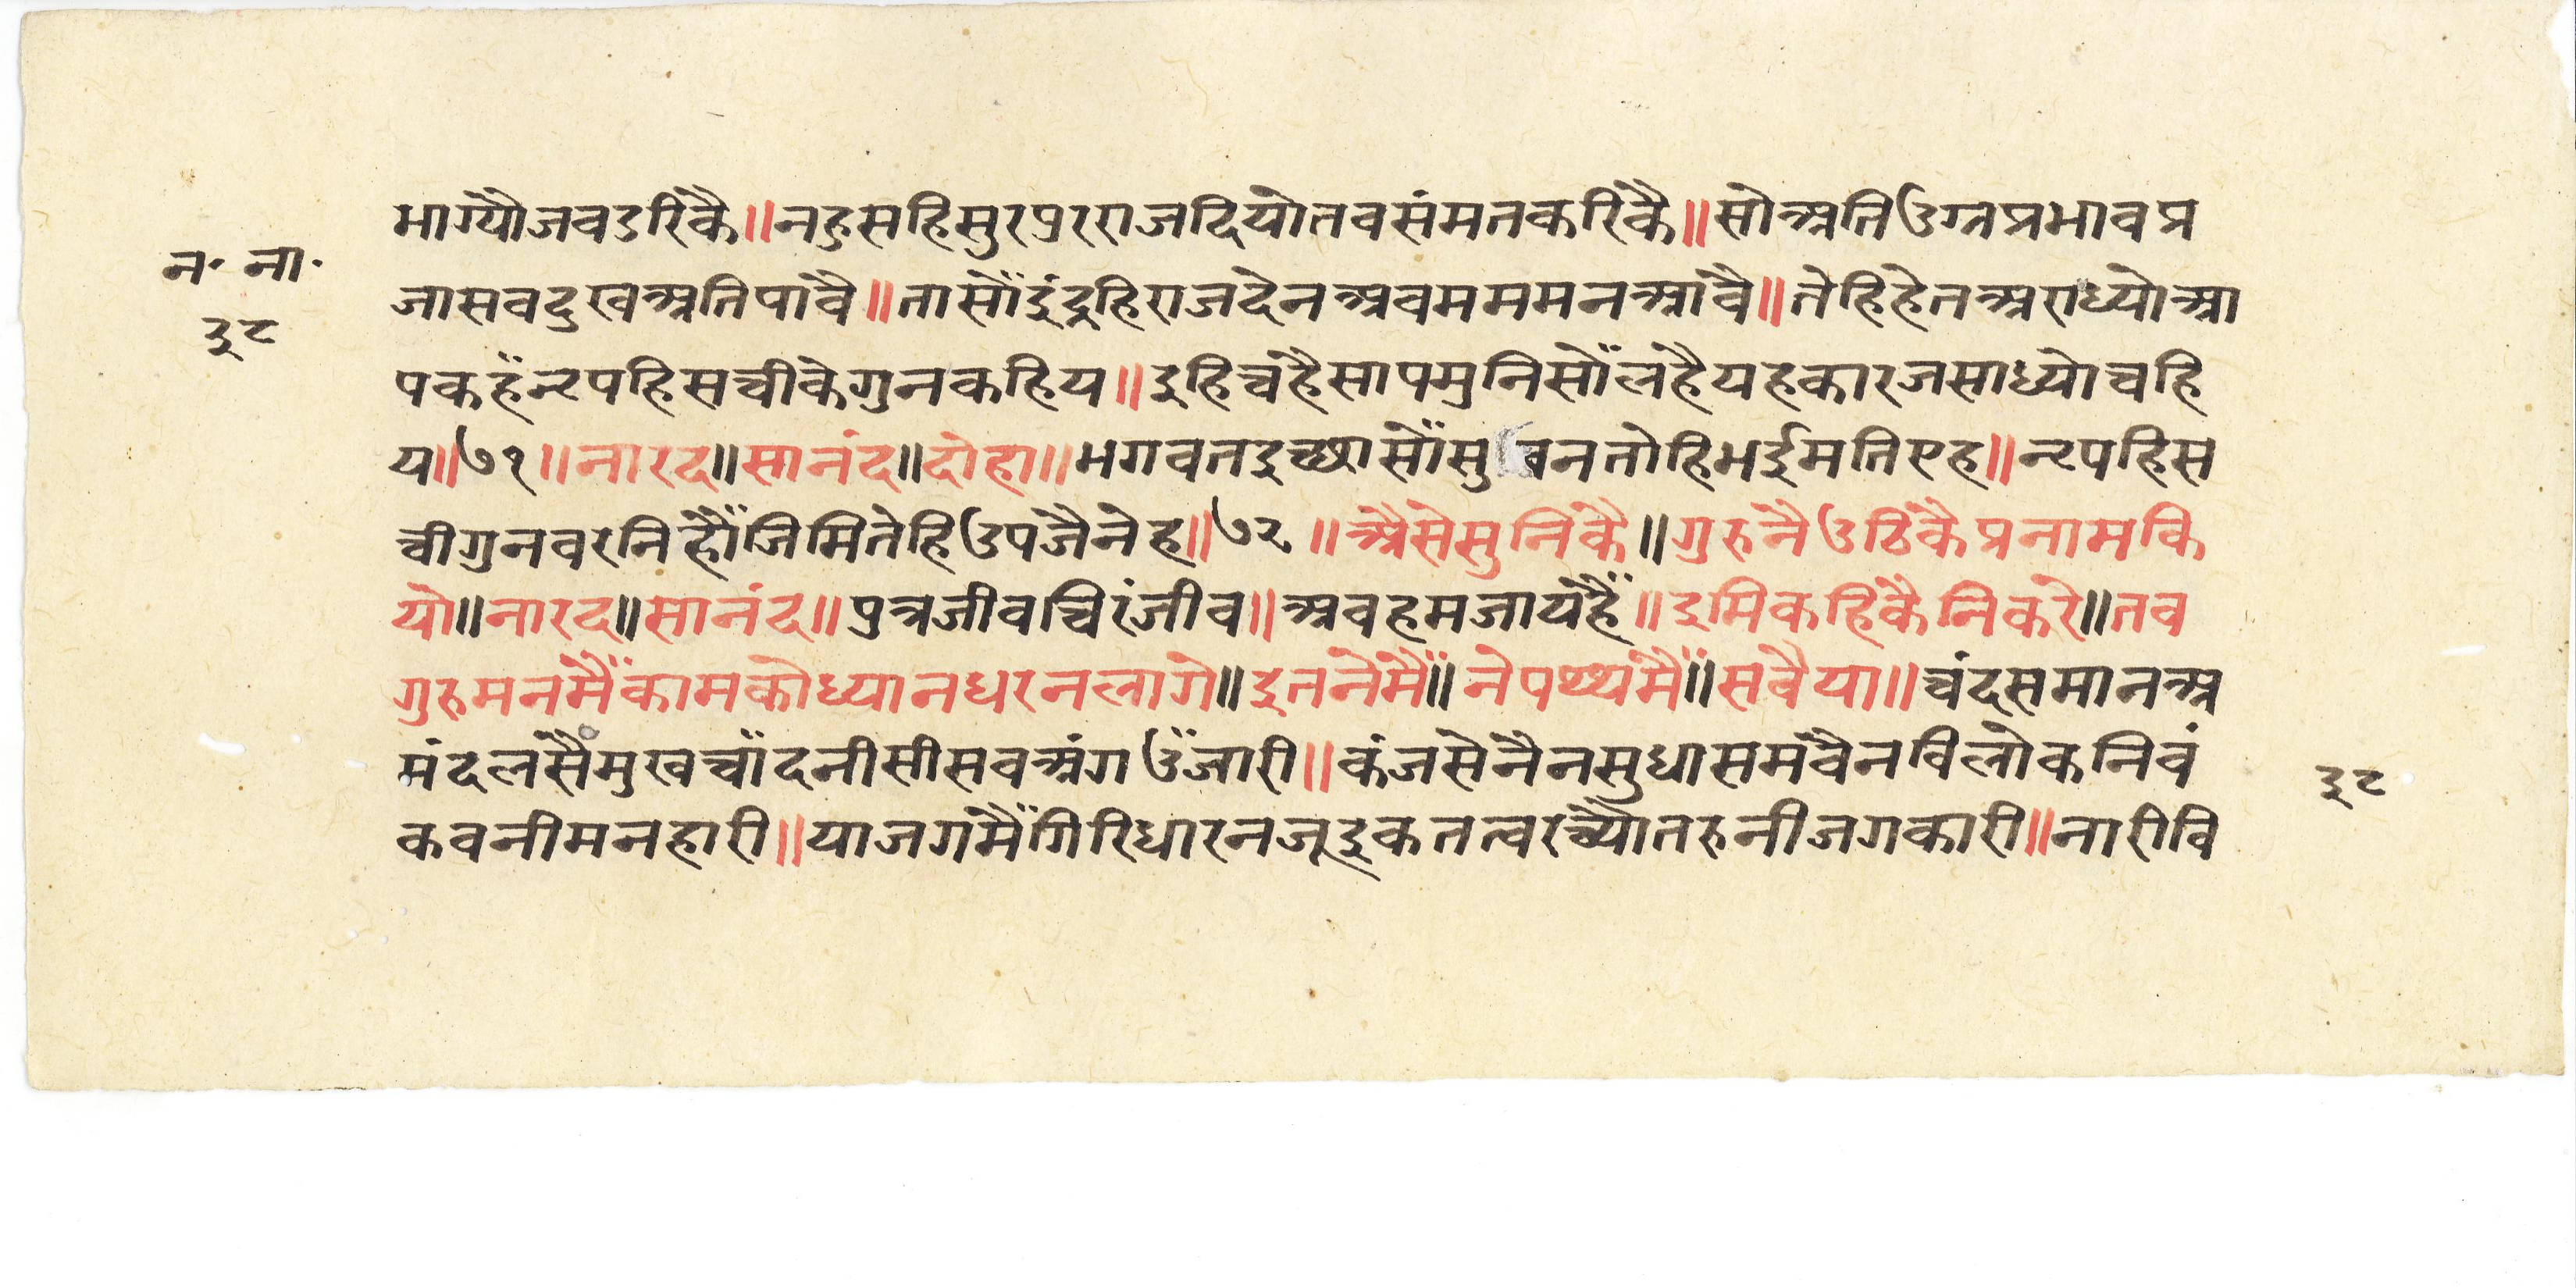 भाग्यौजवडरिकै॥नहुसहिसुरपुरराजदियोतवसंमतकरिकै॥सोअतिउग्नप्रभावप्र
न॰ ना॰
जासवदुखअतिपावै॥तासोँइंद्रहिराजदेनअवमममनआवै॥तेहिहेतअराध्योआ
३८
पकहँनृपहिसचीकेगुनकहिय॥इहिचहैसापमुनिसोँलहैयहकारजसाध्योचहि
य॥७१॥नारद॥सानंद॥दोहा॥भगवतइच्छासोँसुवनतोहिभईमतिएह॥नृपहिस
चीगुनवरनिहौँजिमितेहिउपजैनेह॥७२॥अैसेसुनिकै॥गुरुनैउठिकैप्रनामकि
यो॥नारद॥सानंद॥पुत्रजीवचिरंजीव॥अवहमजायहैँ॥इमिकहिकैनिकरे॥तव
गुरुमनमैँकामकोध्यानधरनलागे॥इतनेमैँ॥नेपथ्यमैँ॥सवैया॥चंदसमानअ
मंदलसैमुखचाँदनीसीसवअंगउँजारी॥कंजसेनैनसुधासमवैनविलोकनिवं
३८
कवनीमनहारी॥याजगमैँगिरिधारनजूइकतत्वरच्यौतरुनीजगकारी॥नारीवि